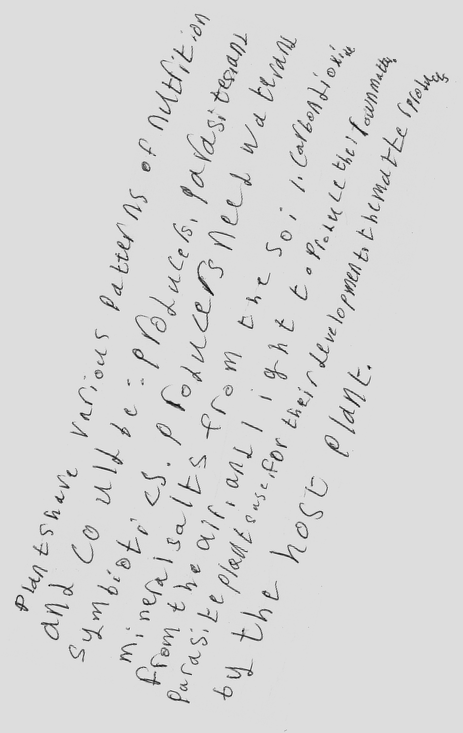 Plants have various patterns of nutrition
and could be: producers, parasites and
symbiotics. Producers need water and
mineral salts from the soil, carbon dioxide
from the air, and light to produce their own matter,
Parasite plants use, for their development, the matter produced
by the host plant.